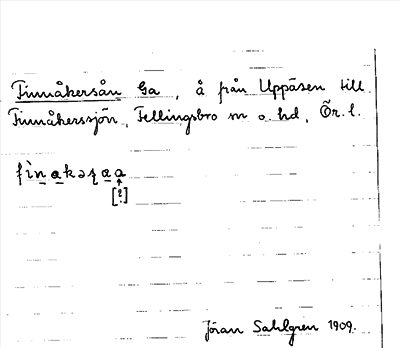 Finnåkersån Ga , å från Uppåsen till
Finnåkerssjön, Fellingsbro sn o. hd, Ör. l.
[?]
Jöran Sahlgren 1909.